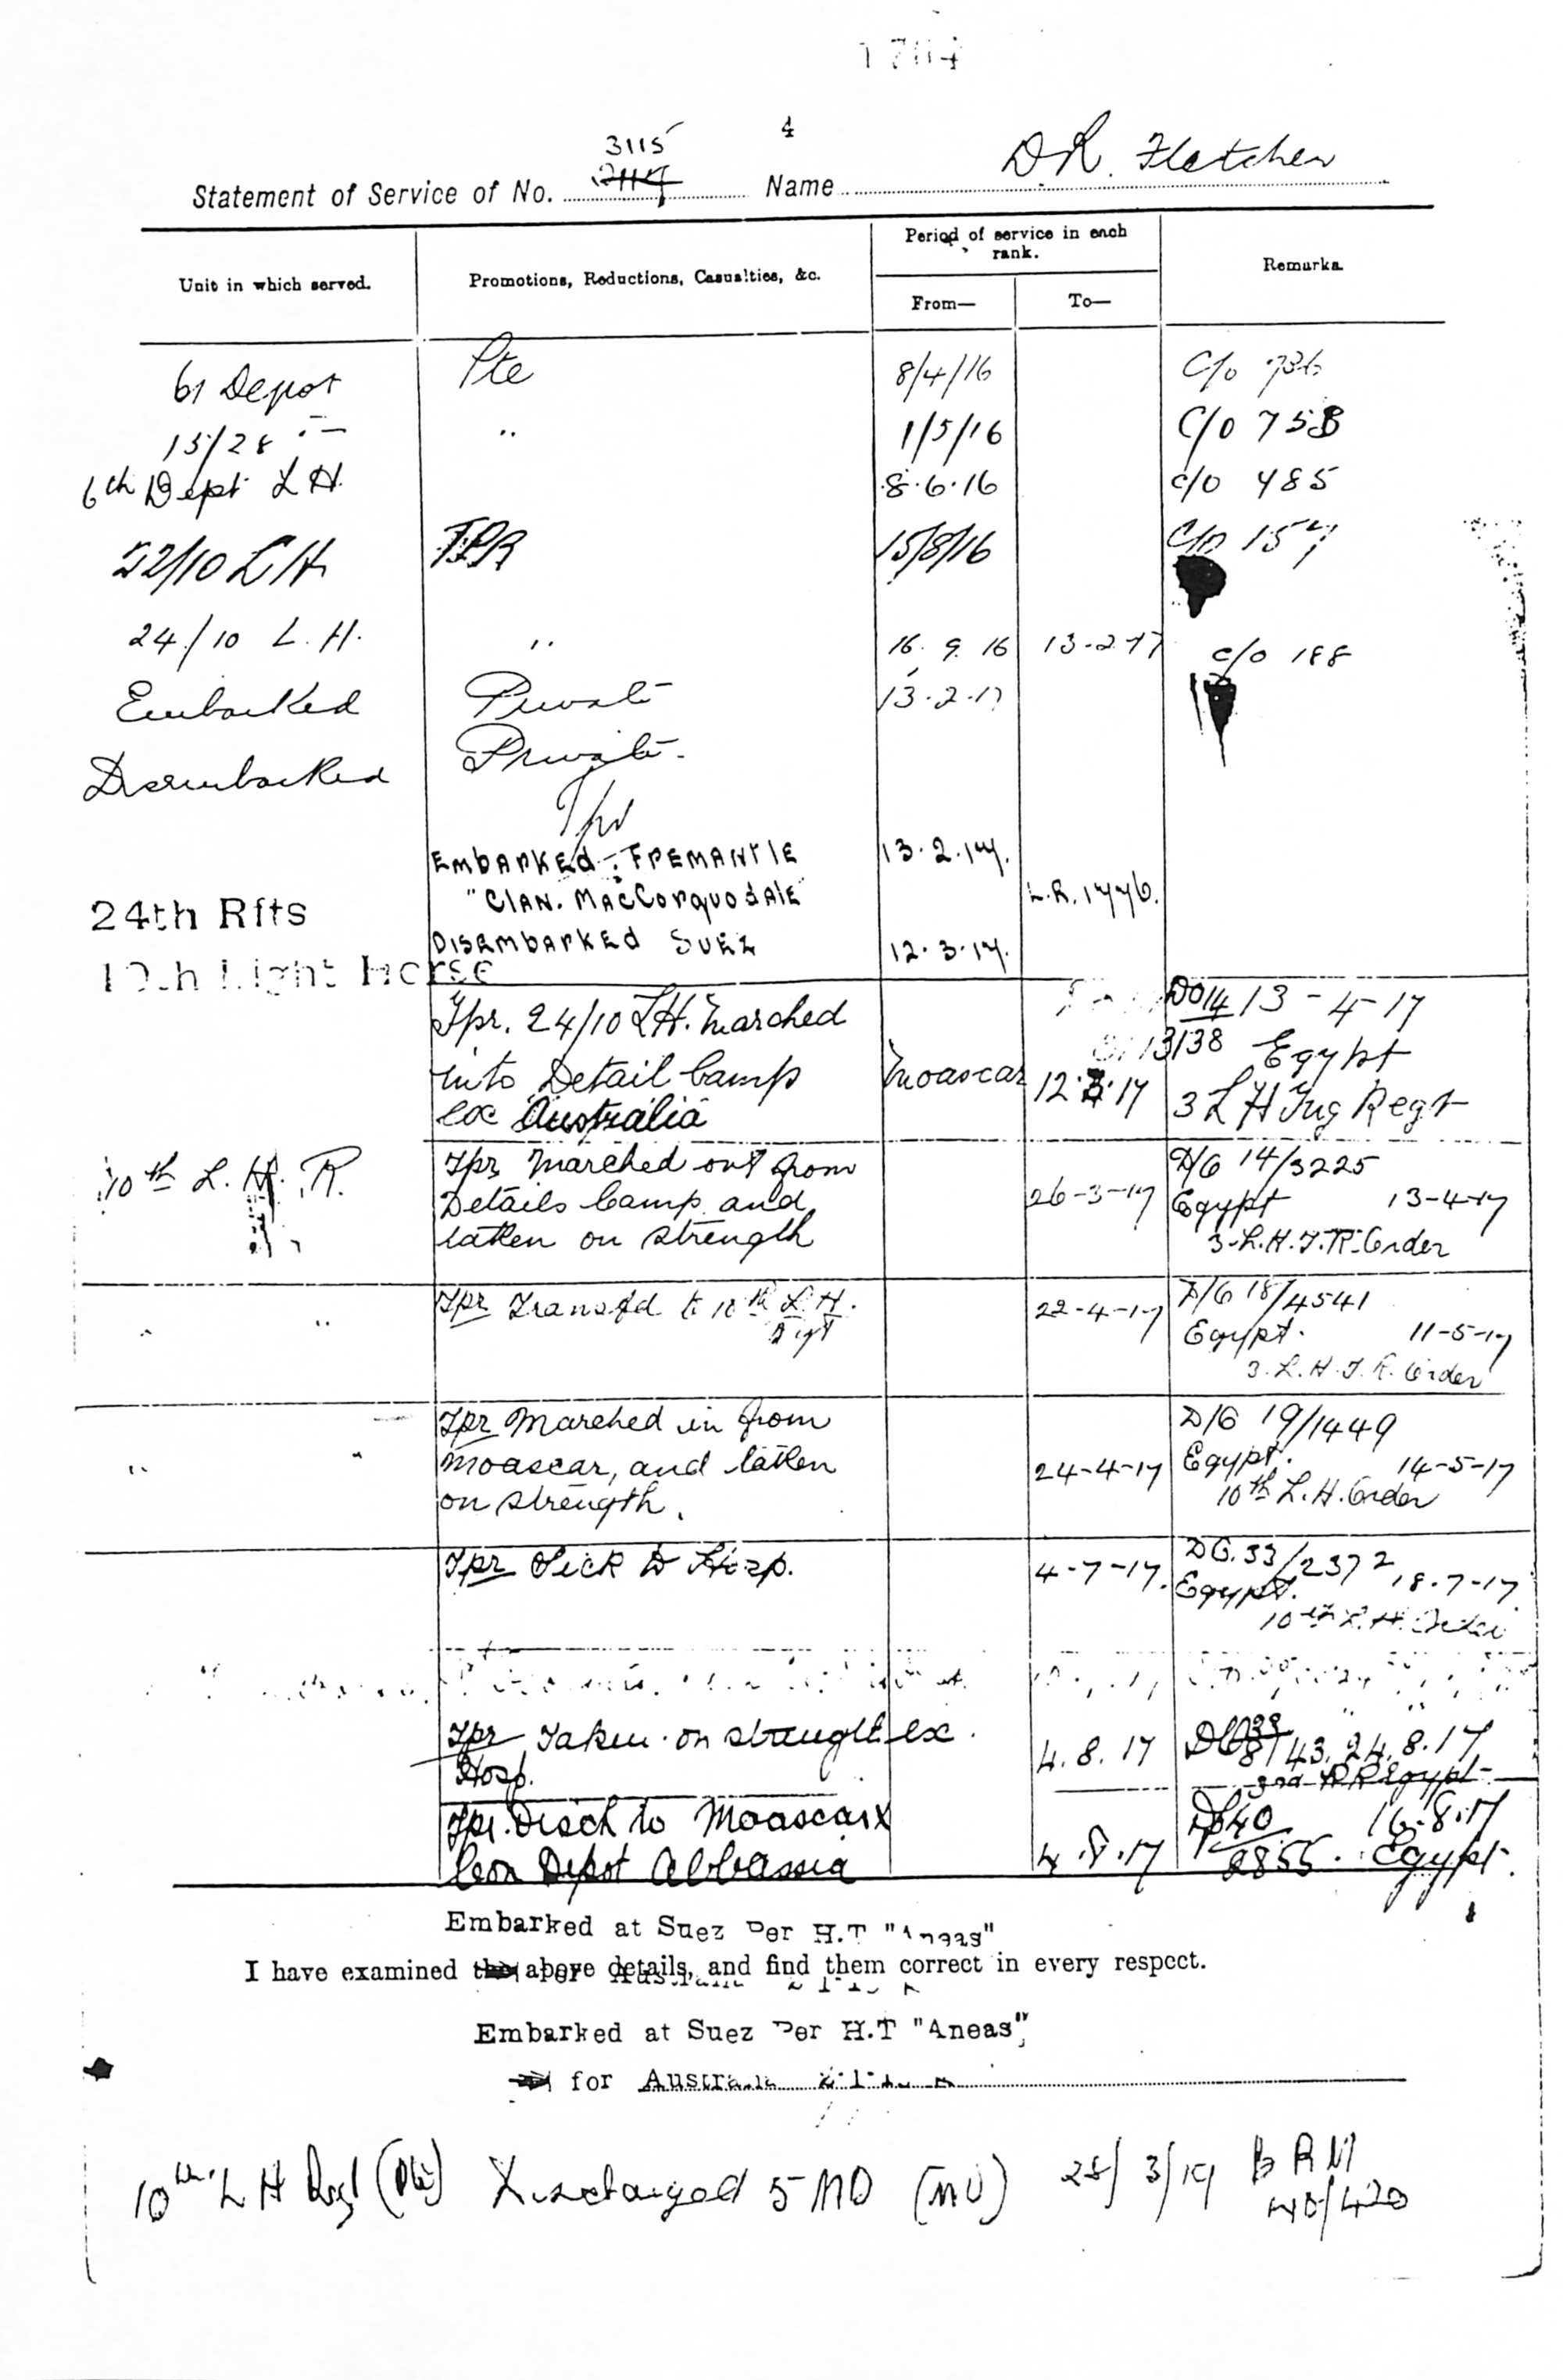 4
3115
Statement of Service of No. Name D R. Fletcher
Unit in which served.
Promotions, Reductions, Casualties, &c.
Period of service in each rank.
From—
To—
Remarks.
61 Depot Pte 8/4/16 C/o
15/28 " 1/5/16 C/o 758
6th Dept L H. 8.6.16 c/o 485
22/10 L H TPR 15/8/16 C/o 157
24/10 L. H. " 16. 9. 16 13-2-17 c/o 188
Embarked Private 13-2-17
Disembarked Private
Tpr
EMBARKED: FREMANTLE 13.2.17.
"CLAN. MACCORQUODALE" L.R. 1776.
24th Rfts
DISEMBARKED SUEZ 12.3.17.
10th Light Horse
Tpr. 24/10 LH. Marched DO14 13-4-17
3138 Egypt
into Detail Camp Moascar 12.3.17 3 L H Trg Regt
ex Australia
10th L. H. R. Tpr Marched out from D/O 14/3225
Details Camp and 26-3-17 Egypt 13-4-17
taken on strength 3-L.H.T.R. Order
" " Tpr Transfd to 10th L.H. 22-4-17 D/O 18/4541
Regt Egypt. 11-5-17
3. L. H. T. R. Order
Tpr Marched in from D/O 19/1449
" " Moascar, and taken 24-4-17 Egypt. 14-5-17
on strength. 10th L.H. Order
Tpr Sick to Hosp. 4-7-17. DO.33/2372 18.7-17
Egypt.
10th L. H. Order
Tpr Taken on strength ex 4.8.17 43. 24.8.17
Hosp. Egypt
Tpr. Disch to Moascar x 40 16-8-17
Con Depot Abbassia 4.8.17 2855. Egypt.
Embarked at Suez Per H.T "Aneas"
I have examined the above details, and find them correct in every respect.
Embarked at Suez Per H.T "Aneas"
for Australia
10th L H Regt Discharged 5 MD (MU) 28/3/19 B R M